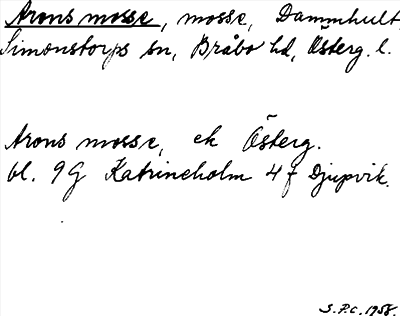 Arons mosse, mosse, Dammhult,
Simonstorps sn, Bråbo hd, Österg. l.
Arons mosse, ek Österg.
bl. 9G Katrineholm 4f Djupvik.
S.P.C. 1958.